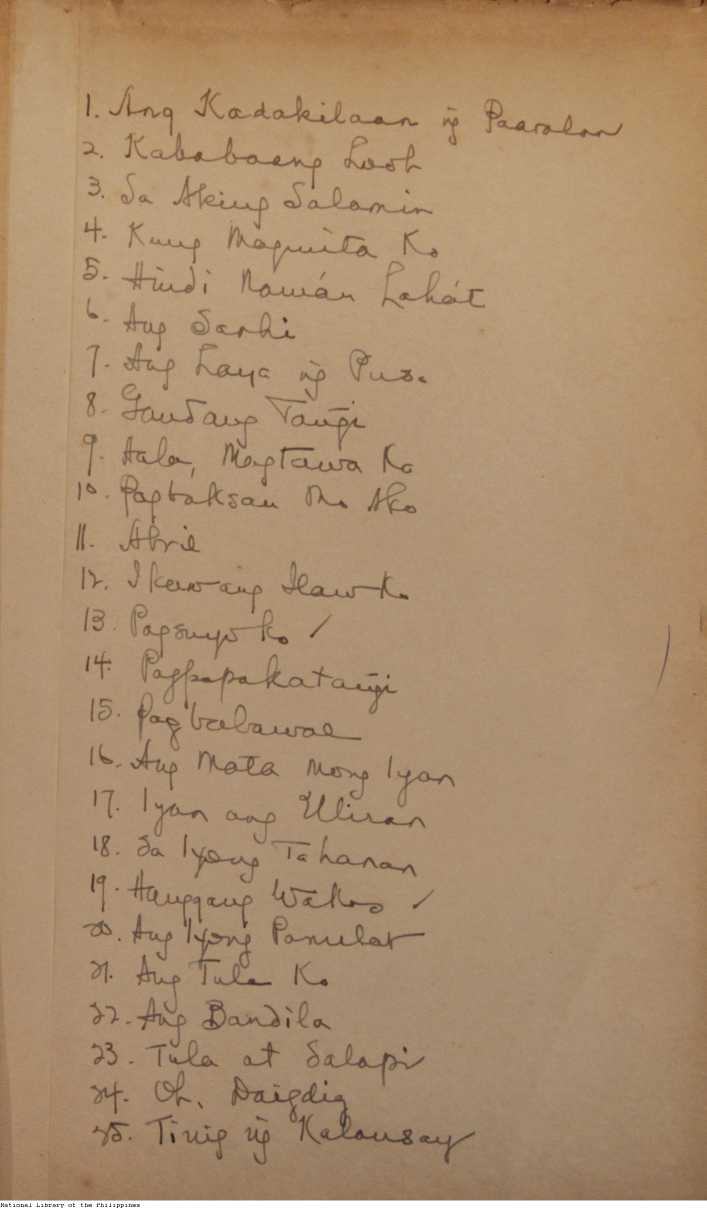 1. Ang Kadakilaan ng̃ Paaralan
2. Kababaang Loob
3. Sa Aking Salamin
4. Kung Magunita Ko
5. Hindi Namán Lahát
6. Ang Sanhi
7. Ang Laya ng̃ Puso
8. Gandang Tang̃i
9. Hala, Magtawa Ka
10. Pagtaksan Mo Ako
11. Abril
12. Ikaw ang Ilaw Ko
13. Pagsuyo ko ✓
14. Pagpapakatang̃i
15. Pagbabawal
16. Ang Mata Mong Iyan
17. Iyan ang Uliran
18. Sa Iyong Tahanan
19. Hanggang Wakas ✓
20. Ang Iyong Panulat
21. Ang Tula Ko
22. Ang Bandila
23. Tula at Salapi
24. Oh, Daigdig
25. Tinig ng̃ Kalansay
National Library of the Philippines